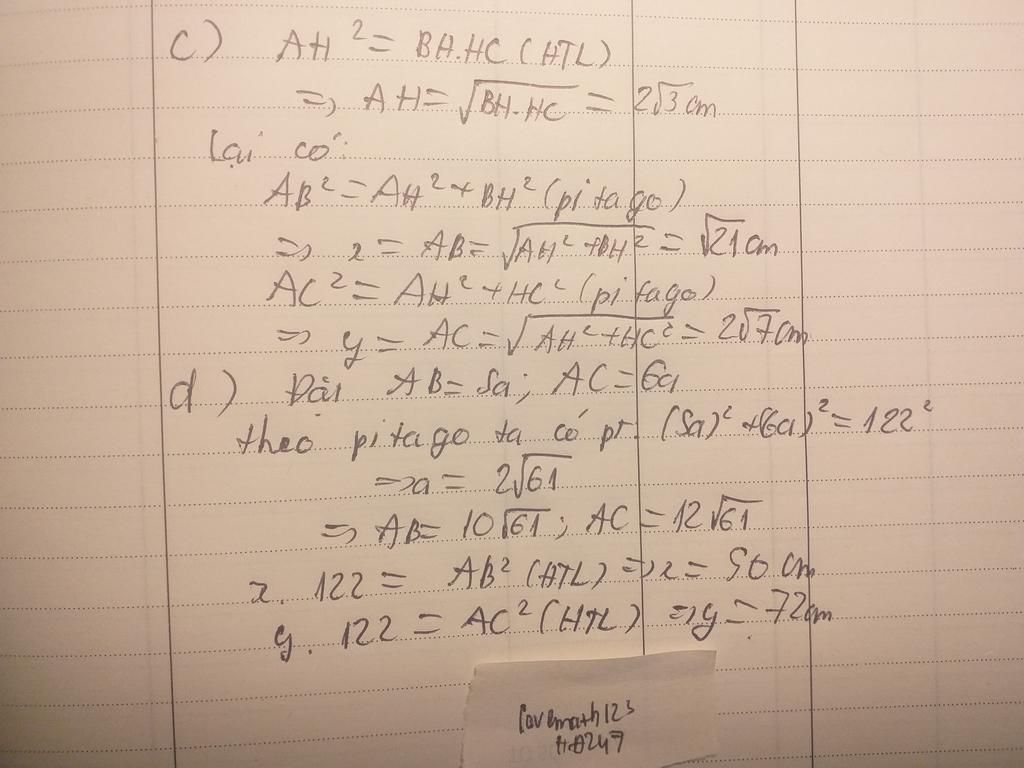 c) AH² = BH.HC (HTL)
=> AH = √BH.HC = 2√3 cm
Lại có:
AB² = AH² + BH² (pi ta go)
=> x = AB = √AH² + BH² = √21 cm
AC² = AH² + HC² (pi tago)
=> y = AC = √AH² + HC² = 2√7 cm
d) Đặt AB = 5a; AC = 6a
theo pi tago ta có pt. (5a)² + (6a)² = 122²
=> a = 2√61
=> AB = 10√61; AC = 12√61
x. 122 = AB² (HTL) => x = 50 cm
y. 122 = AC² (HTL) => y = 72 cm
lovemath123